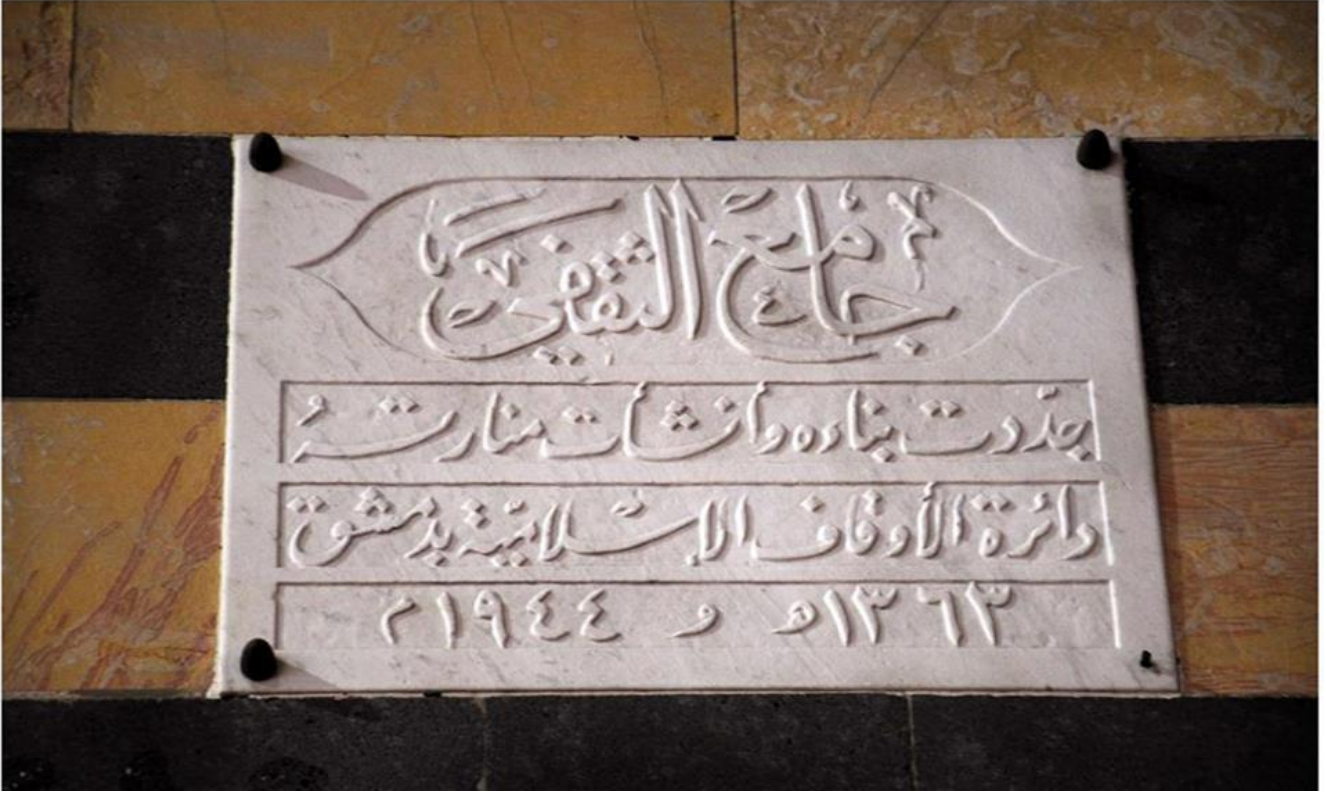 جامع الثقفي
جدّدت بناءه وأنشأت منارتهُ
دائرة الأوقاف الإسلاميّة بدمشق
١٣٦٣ھ و ١٩٤٤م